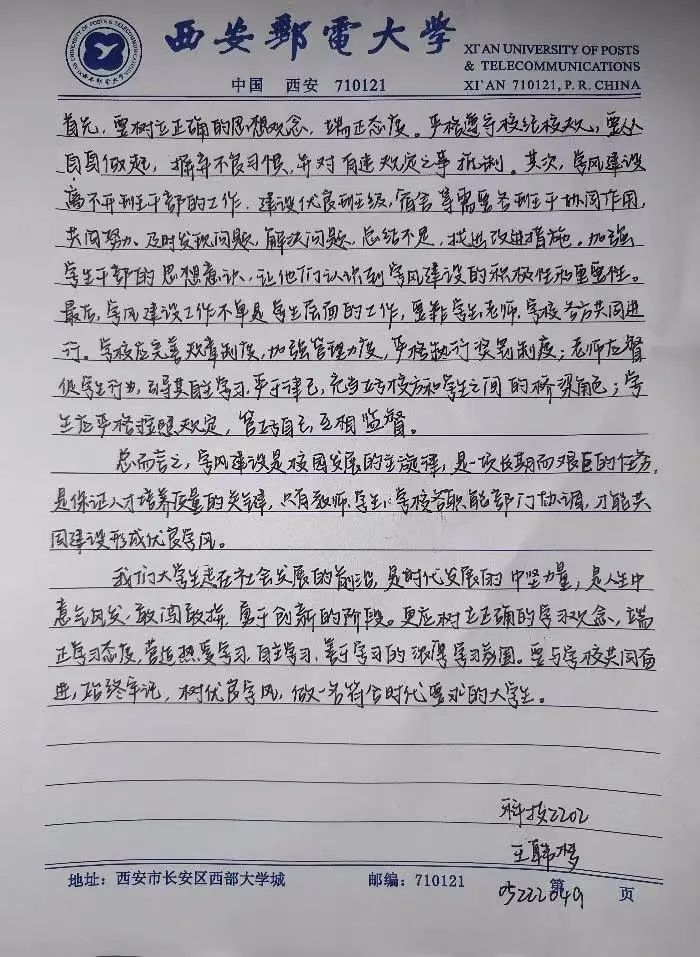 西安郵電大学
XI'AN UNIVERSITY OF POSTS
& TELECOMMUNICATIONS
中国 西安 710121
XI'AN 710121, P.R. CHINA
首先，要树立正确的思想观念，端正态度。严格遵守校纪校规，要从
自身做起，摒弃不良习惯，并对有违规定之事抵制。其次，学风建设
离不开班干部的工作，建设优良班级，宿舍等需要各班干协同作用，
共同努力、及时发现问题，解决问题，总结不足，找出改进措施。加强
学生干部的思想意识，让他们认识到学风建设的积极性和重要性。
最后，学风建设工作不单是学生层面的工作，要靠学生、老师、学校各方共同进
行。学校应完善规章制度，加强管理力度，严格执行奖罚制度；老师应督
促学生行为，引导其自主学习，严于律己，充当好校方和学生之间的桥梁角色；学
生应严格按照规定，管好自己，互相监督。
总而言之，学风建设是校园发展的主旋律，是一项长期而艰巨的任务，
是保证人才培养质量的关键，只有教师、学生、学校各职能部门协调，才能共
同建设形成优良学风。
我们大学生走在社会发展的前沿，是时代发展的中坚力量，是人生中
意气风发、敢闯敢拼、勇于创新的阶段。更应树立正确的学习观念，端
正学习态度，营造热爱学习、自主学习、善于学习的浓厚学习氛围。要与学校共同奋
进，始终牢记，树优良学风，做一名符合时代要求的大学生。
科技2202
王韩梦
05222049
地址：西安市长安区西部大学城 邮编：710121 第 页